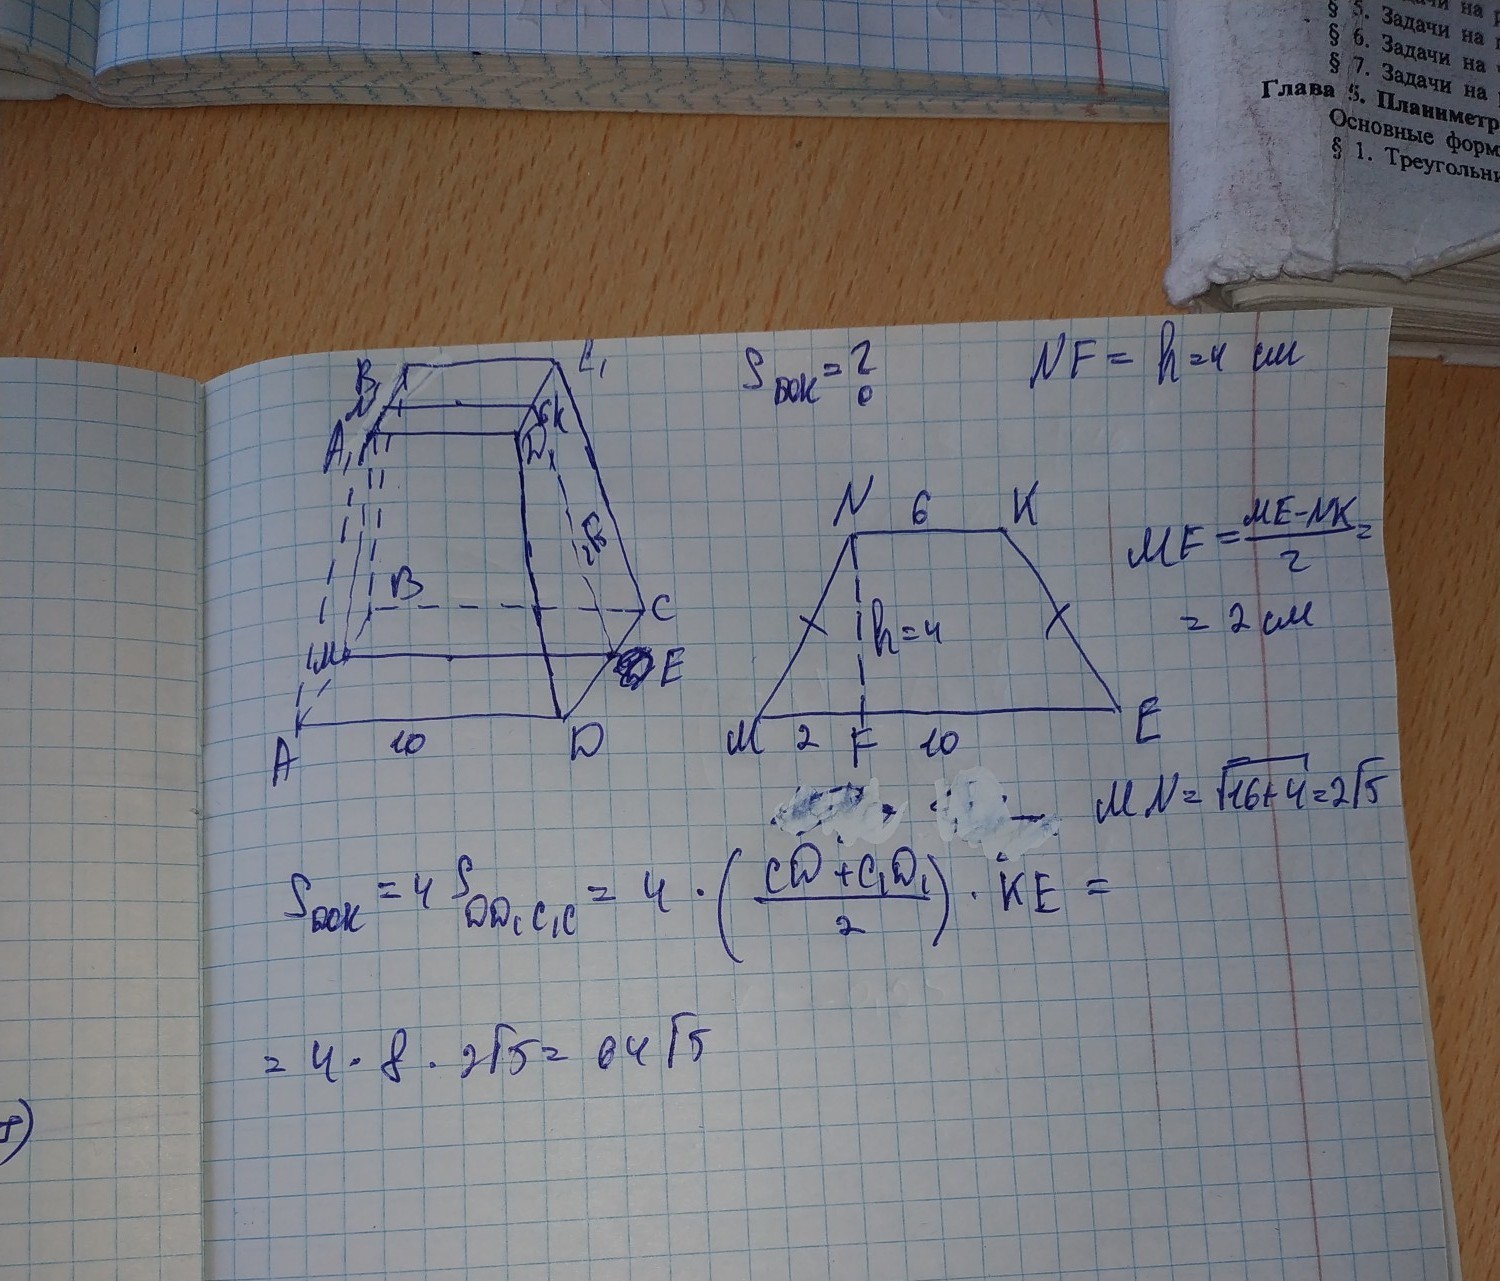 5. Задачи на
§ 6. Задачи на
§ 7. Задачи на
Глава 5. Планиметр
Основные форм
§ 1. Треугольни
B₁ C₁
N K
A₁ D₁
B C
M E
A 10 D
2√5
Sбок = ?
NF = h = 4 см
N 6 K
h = 4
M 2 F 10 E
MF = (ME - NK)/2 =
= 2 см
MN = √16+4 = 2√5
Sбок = 4 S DD₁C₁C = 4 · ((CD + C₁D₁)/2) · KE =
= 4 · 8 · 2√5 = 64√5